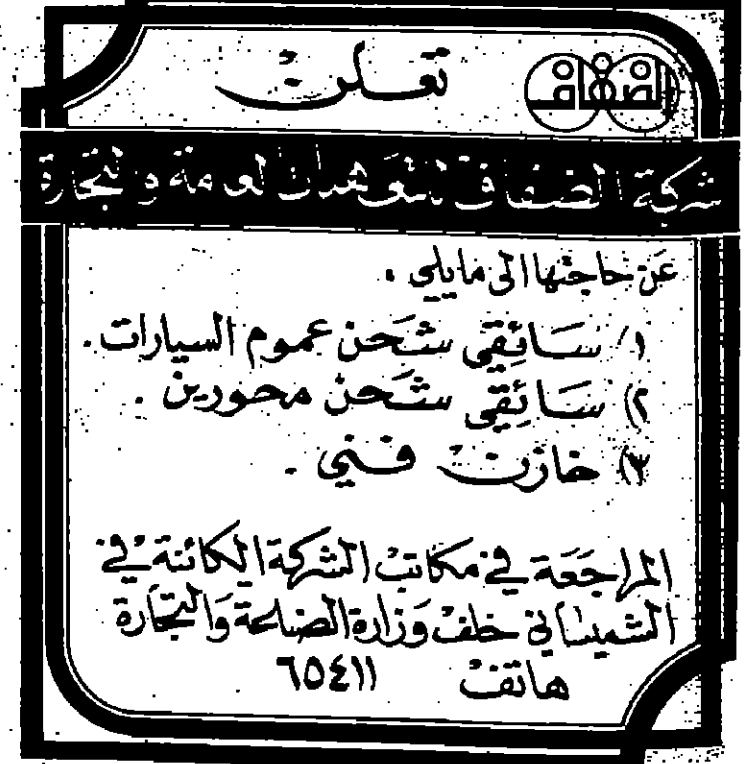 الضفاف
تعلن
شركة الضفاف للتعهدات العامة والتجارة
عن حاجتها الى مايلي .
١/ سائقي شحن عموم السيارات .
٢) سائقي شحن محورين .
٣) خازن فني .
المراجعة في مكاتب الشركة الكائنة في
الشميساني خلف وزارة الصناعة والتجارة
هاتف ٦٥٤١١